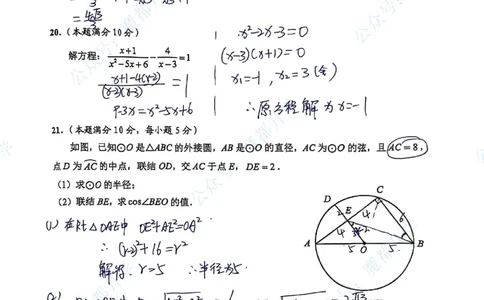 = 4√3/3
20.（本题满分10分）
解方程：(x+1)/(x²-5x+6) - 4/(x-3) = 1
(x+1-4(x-2))/((x-2)(x-3)) = 1
9-3x=x²-5x+6
x²-2x-3=0
(x-3)(x+1)=0
x₁=-1, x₂=3(舍)
∴原方程解为x=-1
21.（本题满分10分，每小题5分）
如图，已知⊙O是△ABC的外接圆，AB是⊙O的直径，AC为⊙O的弦，且AC=8，
点D为AC的中点，联结OD，交AC于点E，DE=2．
（1）求⊙O的半径；
（2）联结BE，求cos∠BEO的值．
(1) 在Rt△OAE中 OE²+AE²=OA²
∴(r-2)²+16=r²
解得．r=5 ∴半径为5．
D
C
2
E
4
6
4
A
5
O
5
B